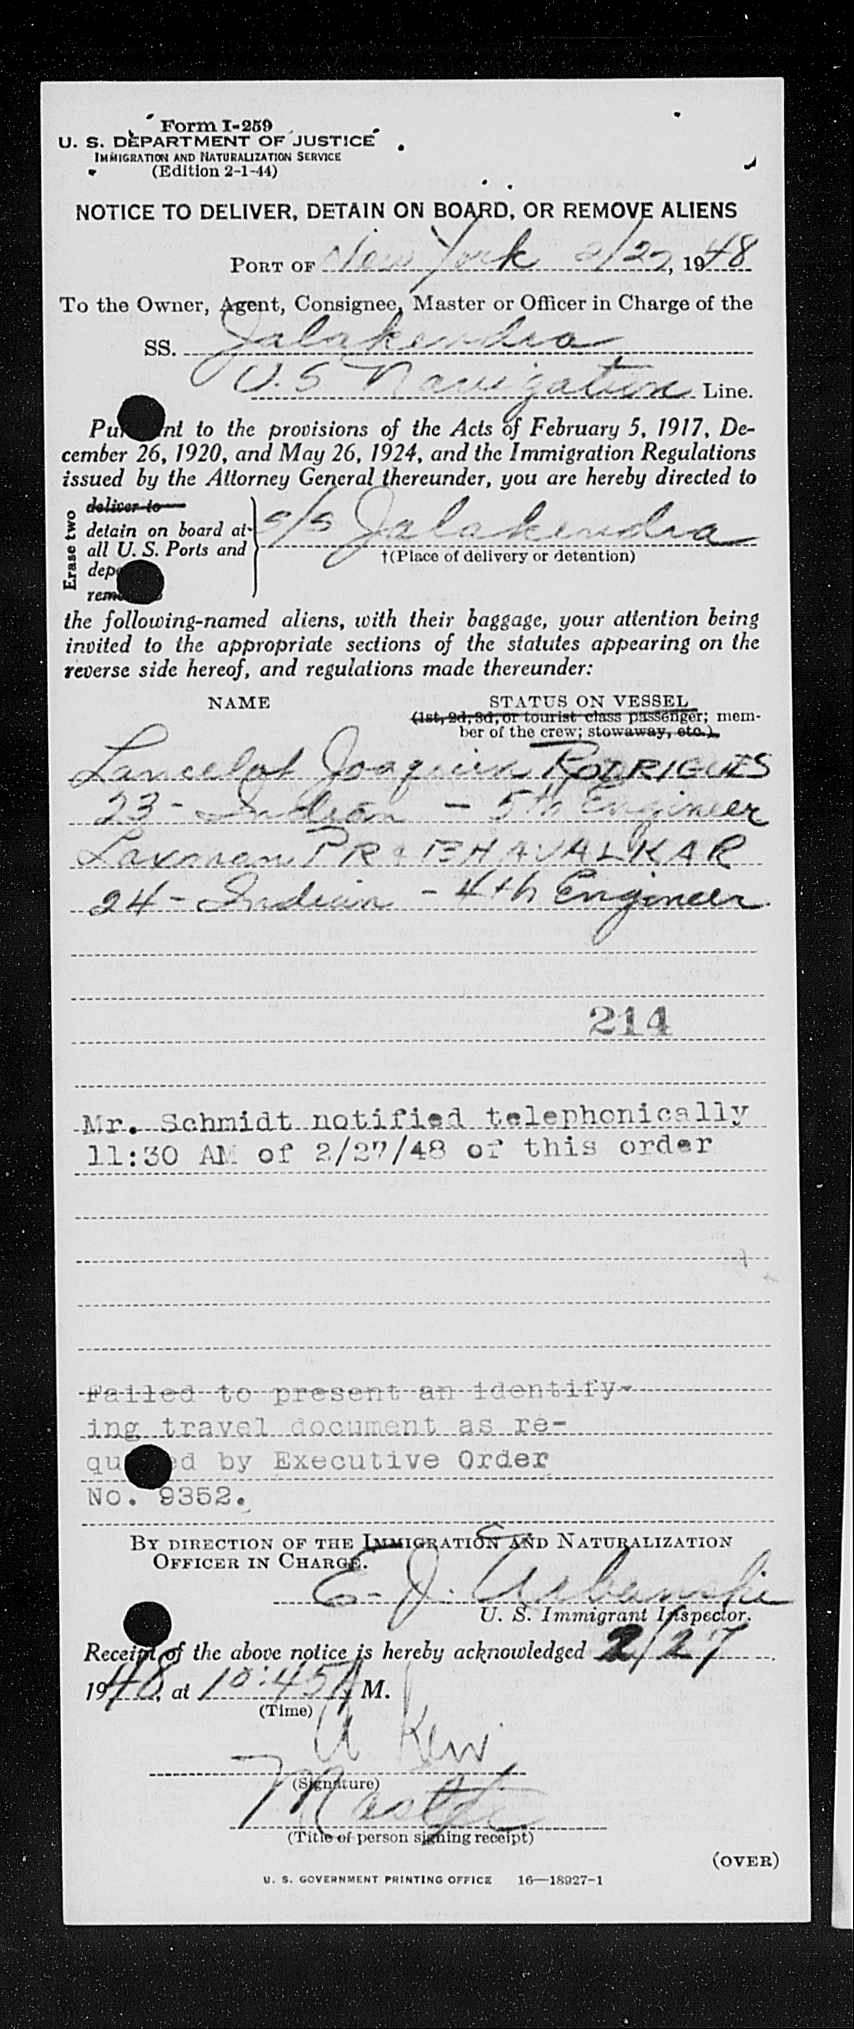 Form I-259
U. S. DEPARTMENT OF JUSTICE
IMMIGRATION AND NATURALIZATION SERVICE
(Edition 2-1-44)
NOTICE TO DELIVER, DETAIN ON BOARD, OR REMOVE ALIENS
PORT OF New York 2/27, 1948
To the Owner, Agent, Consignee, Master or Officer in Charge of the
SS. Jalakendra
U.S Navigation Line.
to the provisions of the Acts of February 5, 1917, De-
cember 26, 1920, and May 26, 1924, and the Immigration Regulations
issued by the Attorney General thereunder, you are hereby directed to
Erase two
deliver to
detain on board at
all U. S. Ports and
s/s Jalakendra
†(Place of delivery or detention)
the following-named aliens, with their baggage, your attention being
invited to the appropriate sections of the statutes appearing on the
reverse side hereof, and regulations made thereunder:
NAME STATUS ON VESSEL
(1st, 2d, 3d, or tourist class passenger; mem-
ber of the crew; stowaway, etc.)
Lancelot Joaquim RODRIGUES
23 - Indian - 5th Engineer
Laxman PRABHAVALKAR
24 - Indian - 4th Engineer
214
Mr. Schmidt notified telephonically
11:30 AM of 2/27/48 of this order
Failed to present an identify-
ing travel document as re-
by Executive Order
No. 9352.
BY DIRECTION OF THE IMMIGRATION AND NATURALIZATION
OFFICER IN CHARGE.
E. J. Urbanski
U. S. Immigrant Inspector.
Receipt of the above notice is hereby acknowledged 2/27
1948, at 10:45 A M.
(Time)
(Signature)
Master
(Title of person signing receipt)
(OVER)
U. S. GOVERNMENT PRINTING OFFICE 16—18927-1